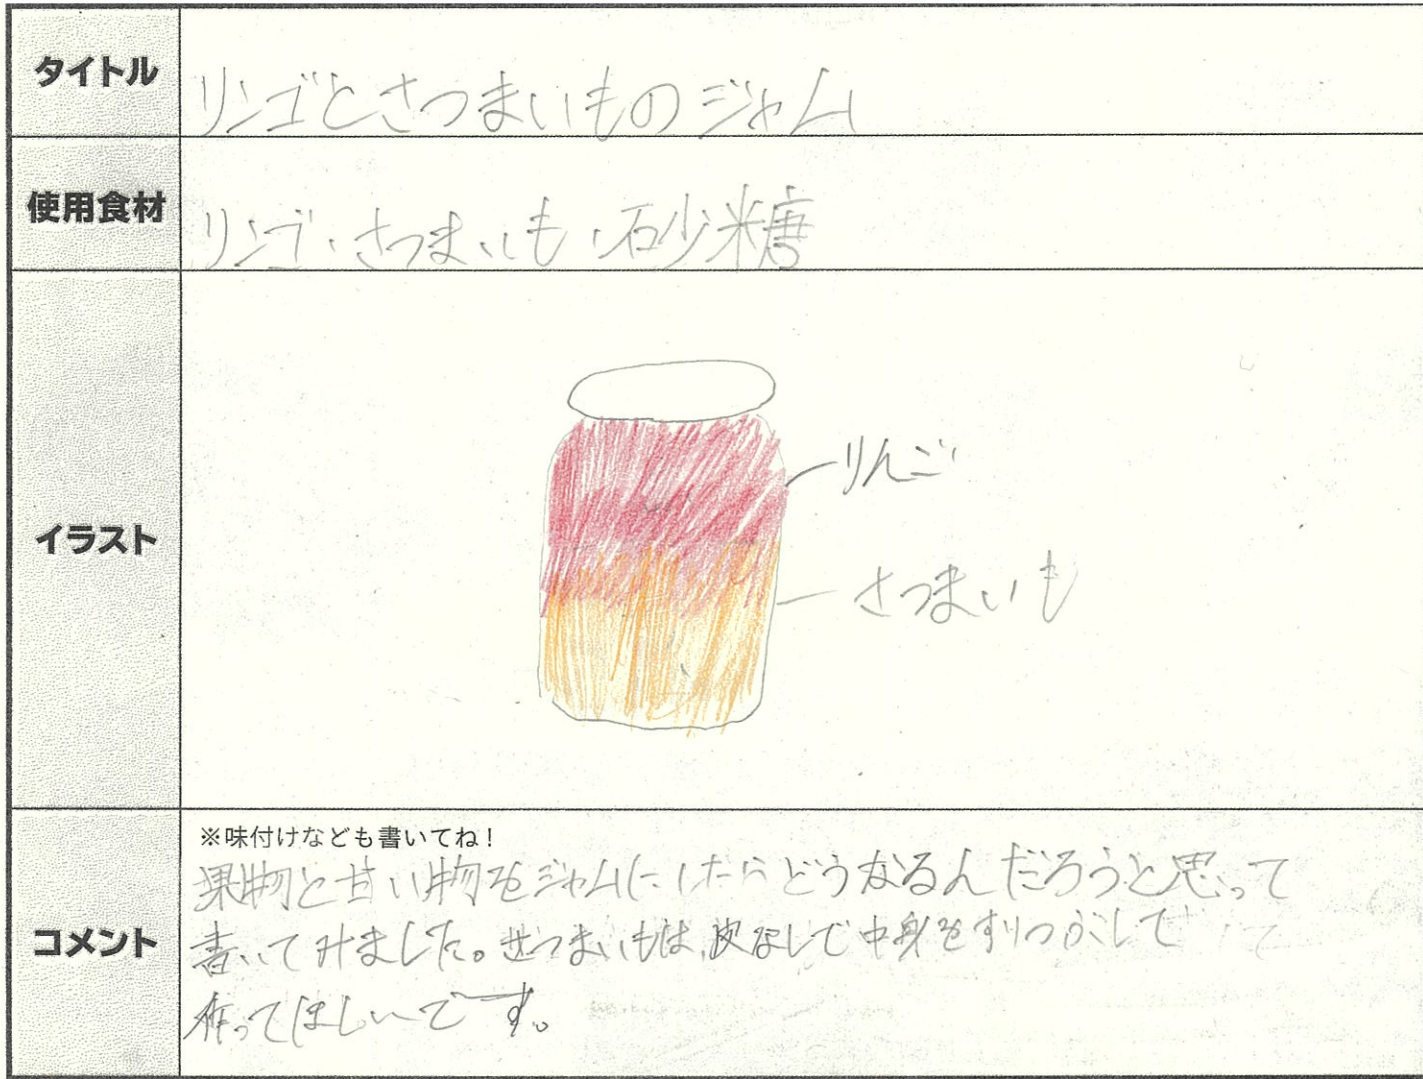 タイトル
リンゴとさつまいものジャム
使用食材
リンゴ、さつまいも、砂糖
イラスト
りんご
さつまいも
コメント
※味付けなども書いてね！
果物と甘い物をジャムにしたらどうなるんだろうと思って
書いてみました。さつまいもは、皮なしで中身をすりつぶして
作ってほしいです。